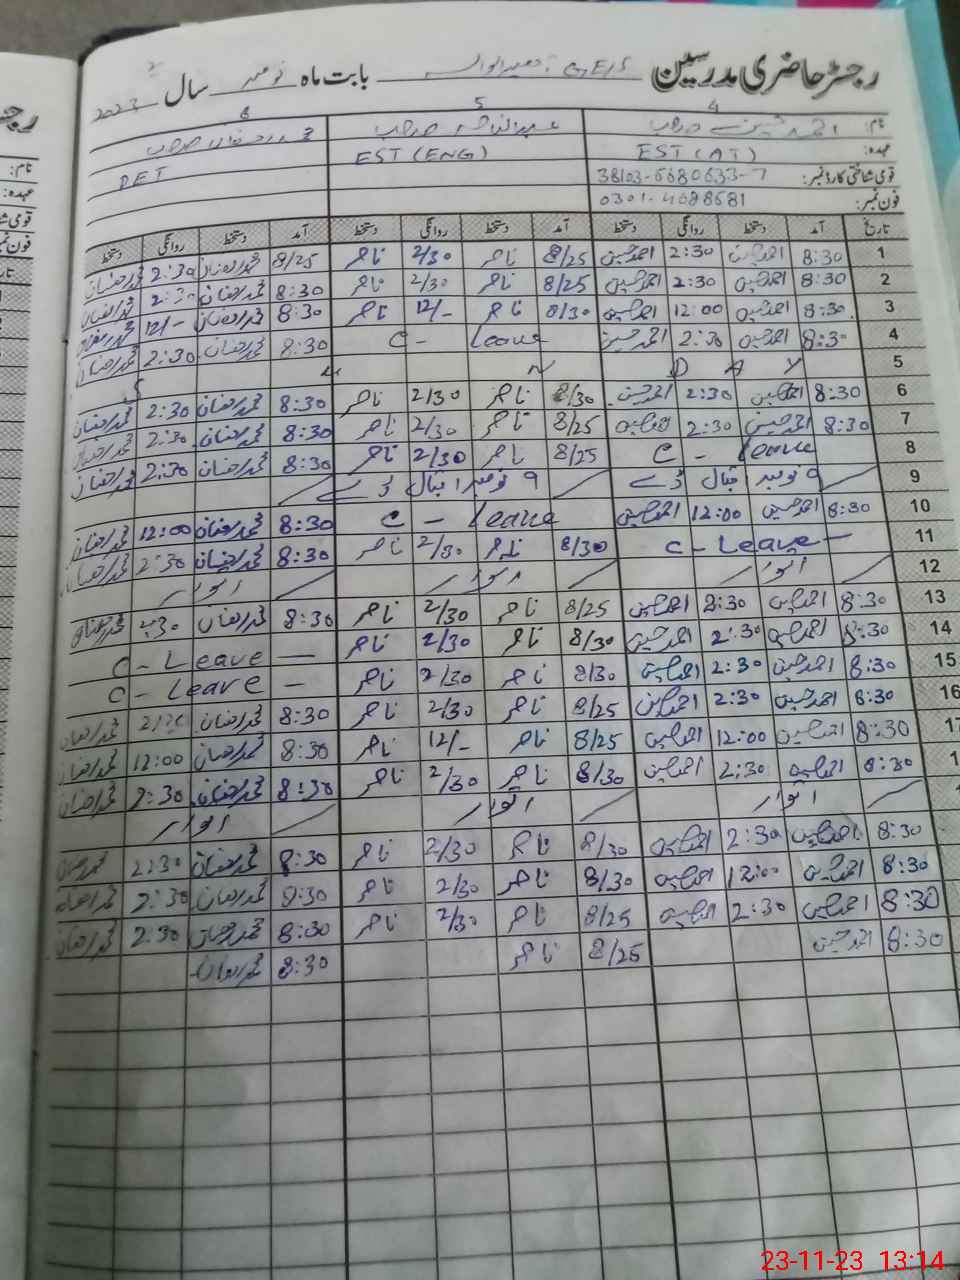 رجسٹر حاضری مدرسین G.E/S بابت ماہ نومبر سال 2023
4 5 6
نام: احمد حسین صاحب صاحب محمد رمضان صاحب
عہدہ: EST (AT) EST (ENG) PET
قومی شناختی کارڈ نمبر: 38103-6680633-7
فون نمبر: 0301-4088681
تاریخ آمد دستخط روانگی دستخط آمد دستخط روانگی دستخط آمد دستخط روانگی دستخط
1 8:30 احمد حسین 2:30 احمد حسین 8/25 ناصر 2/30 ناصر 8/25 محمد رمضان 2:30 محمد رمضان
2 8:30 احمد حسین 2:30 احمد حسین 8/25 ناصر 2/30 ناصر 8:30 محمد رمضان 2:30 محمد رمضان
3 8:30 احمد حسین 12:00 احمد حسین 8/30 ناصر 12/- ناصر 8:30 محمد رمضان 12/- محمد رمضان
4 8:30 احمد حسین 2:30 احمد حسین C - Leave 8:30 محمد رمضان 2:30 محمد رمضان
5 S U N D A Y
6 8:30 احمد حسین 2:30 احمد حسین 8/30 ناصر 2/30 ناصر 8:30 محمد رمضان 2:30 محمد رمضان
7 8:30 احمد حسین 2:30 احمد حسین 8/25 ناصر 2/30 ناصر 8:30 محمد رمضان 2:30 محمد رمضان
8 C - Leave 8/25 ناصر 2/30 ناصر 8:30 محمد رمضان 2:30 محمد رمضان
9 9 نومبر اقبال ڈے 9 نومبر اقبال ڈے
10 8:30 احمد حسین 12:00 احمد حسین C - Leave 8:30 محمد رمضان 12:00 محمد رمضان
11 C - Leave - 8/30 ناصر 2/30 ناصر 8:30 محمد رمضان 2:30 محمد رمضان
12 اتوار اتوار اتوار
13 8:30 احمد حسین 2:30 احمد حسین 8/25 ناصر 2/30 ناصر 8:30 محمد رمضان 2:30 محمد رمضان
14 8:30 احمد حسین 2:30 احمد حسین 8/30 ناصر 2/30 ناصر C - Leave —
15 8:30 احمد حسین 2:30 احمد حسین 8/30 ناصر 2/30 ناصر C - Leave -
16 8:30 احمد حسین 2:30 احمد حسین 8/25 ناصر 2/30 ناصر 8:30 محمد رمضان 2:30 محمد رمضان
8:30 احمد حسین 12:00 احمد حسین 8/25 ناصر 12/- ناصر 8:30 محمد رمضان 12:00 محمد رمضان
8:30 احمد حسین 2:30 احمد حسین 8/30 ناصر 2/30 ناصر 8:30 محمد رمضان 2:30 محمد رمضان
اتوار اتوار اتوار
8:30 احمد حسین 2:30 احمد حسین 8/30 ناصر 2/30 ناصر 8:30 محمد رمضان 2:30 محمد رمضان
8:30 احمد حسین 12:00 احمد حسین 8/30 ناصر 2/30 ناصر 8:30 محمد رمضان 2:30 محمد رمضان
8:30 احمد حسین 2:30 احمد حسین 8/25 ناصر 2/30 ناصر 8:30 محمد رمضان 2:30 محمد رمضان
8:30 احمد حسین 8/25 ناصر 8:30 محمد رمضان
23-11-23 13:14